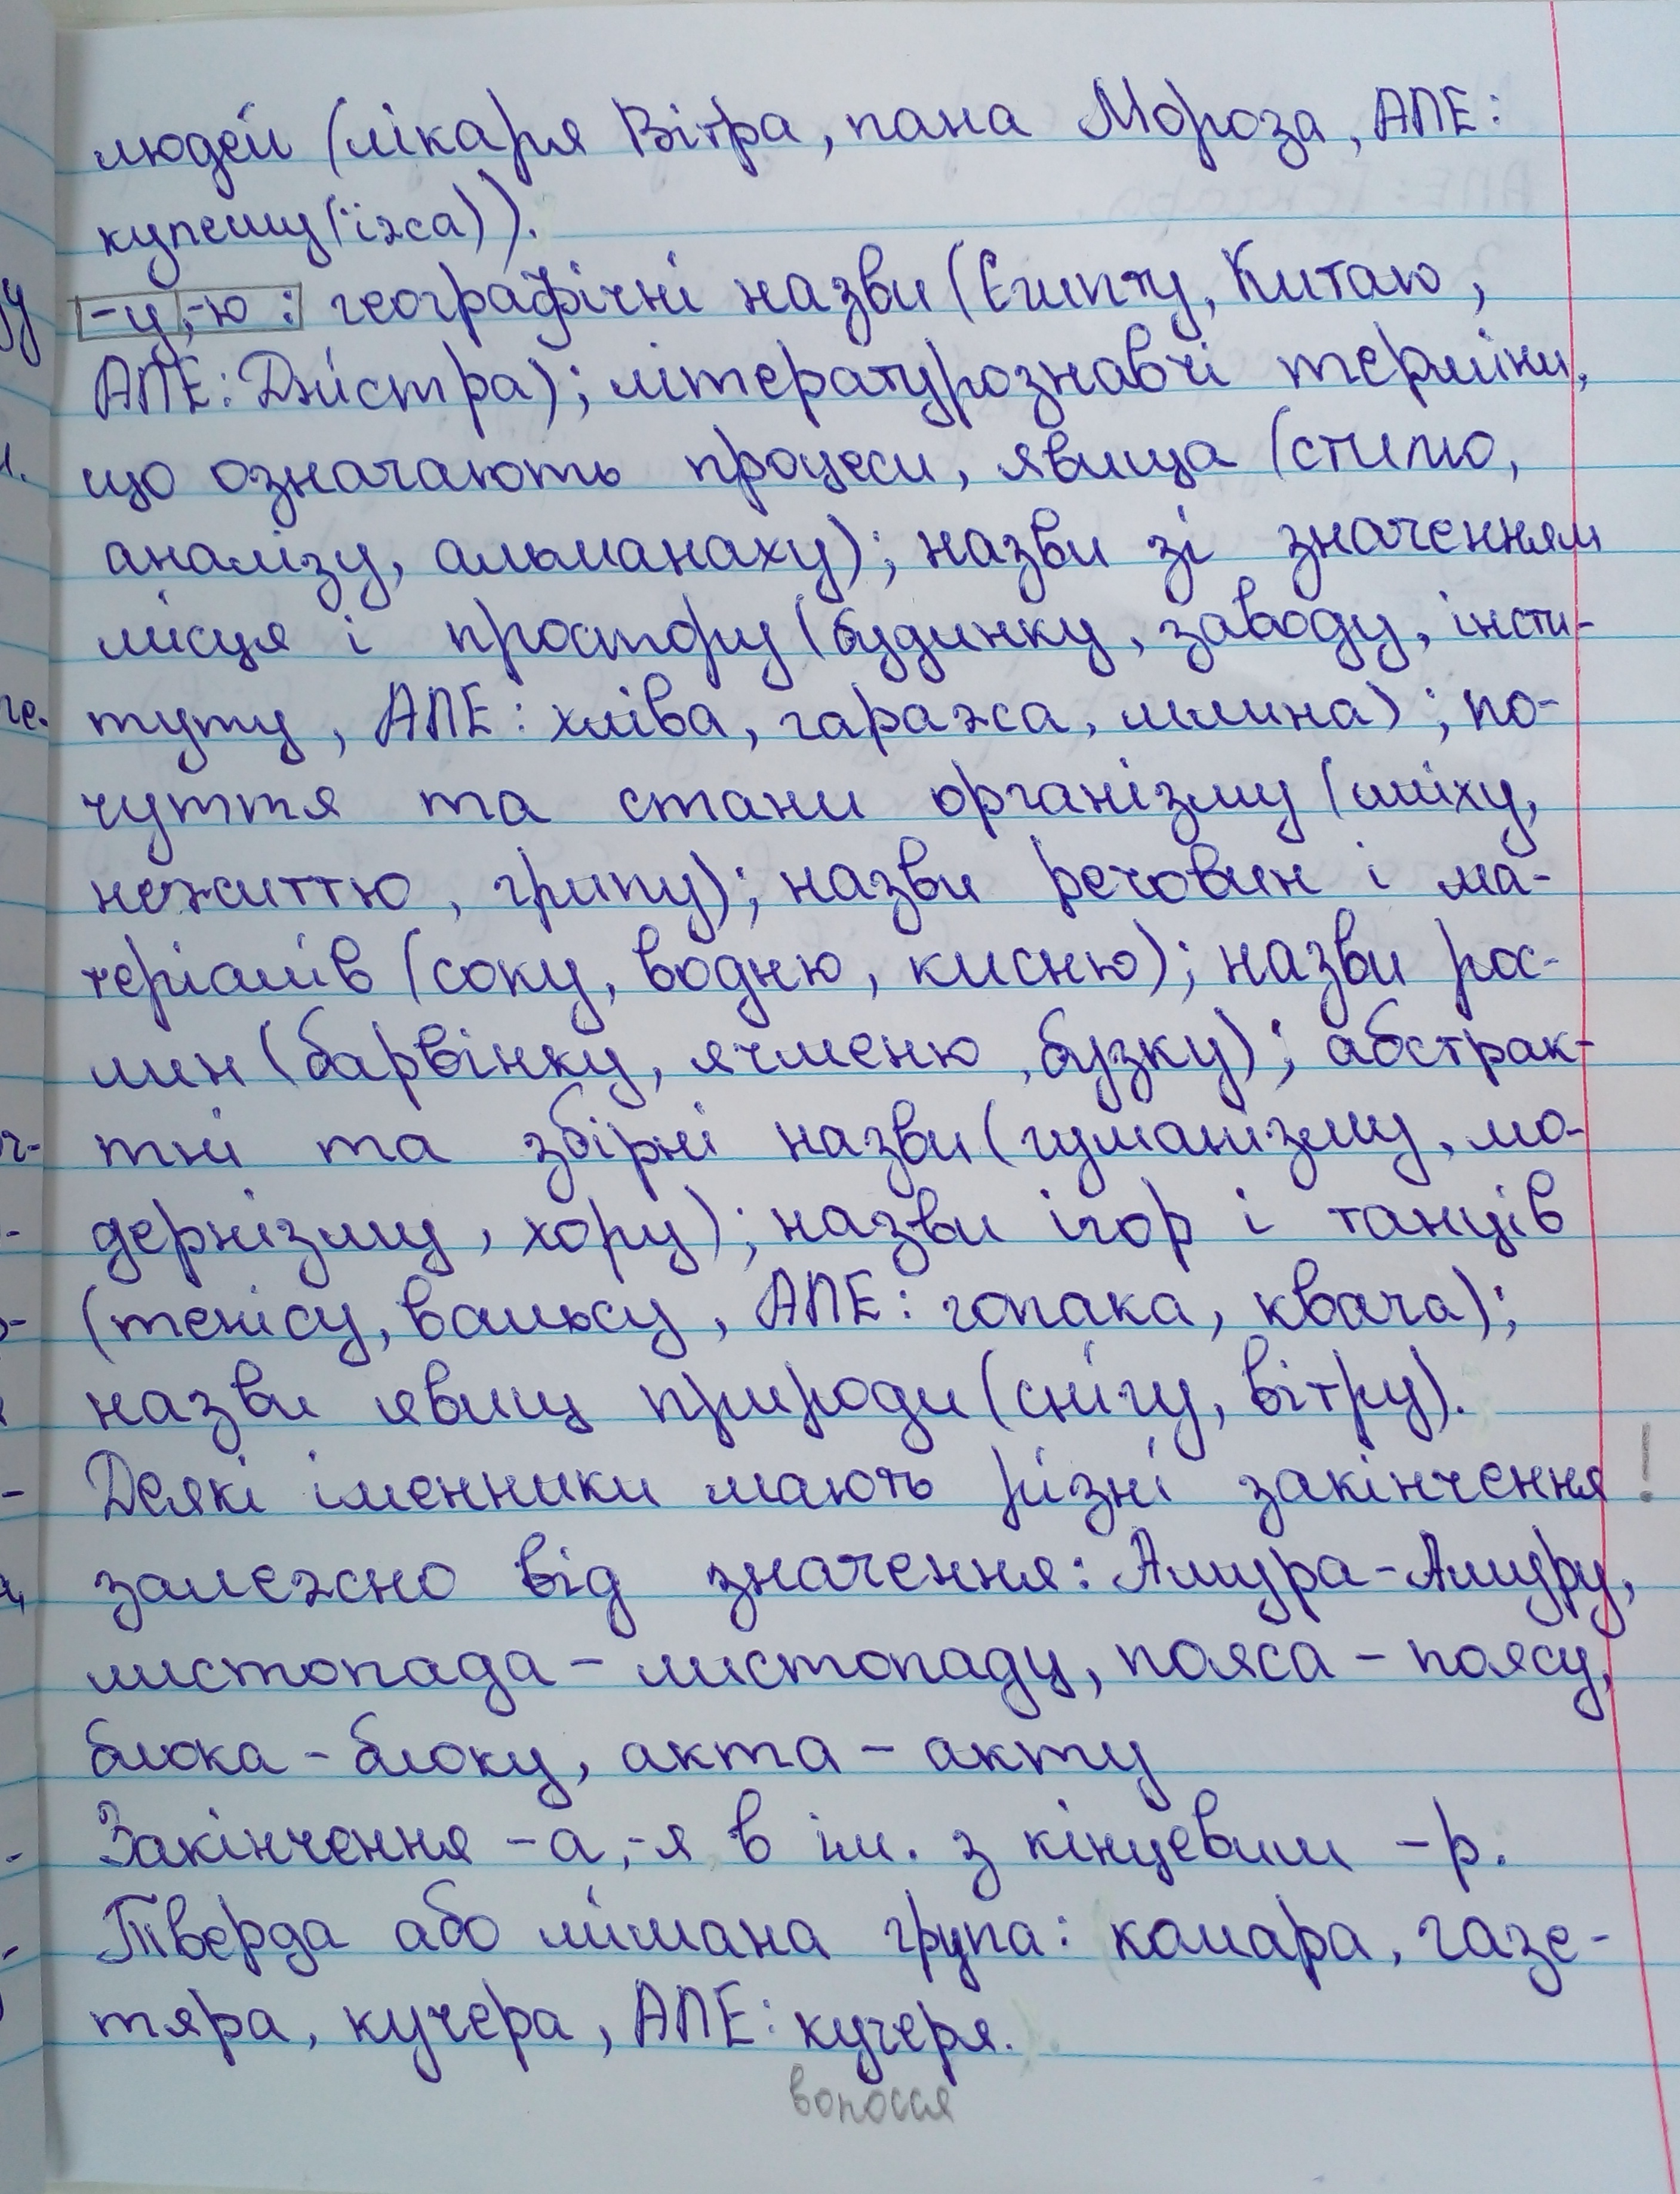 людей (лікаря Вітра, пана Мороза, АПЕ:
купешу (їжа)).
-у, -ю: географічні назви (Єгипту, Китаю,
АПЕ: Дністра); літературознавчі терміни,
що означають процеси, явища (стилю,
аналізу, альманаху); назви зі значенням
місця і простору (будинку, заводу, інсти-
туту, АПЕ: хліва, гаража, млина); по-
чуття та стани організму (сміху,
нежиттю, грипу); назви речовин і ма-
теріалів (соку, водню, кисню); назви рос-
лин (барвінку, ячменю, бузку); абстрак-
тні та збірні назви (гуманізму, мо-
дернізму, хору); назви ігор і танців
(тенісу, вальсу, АПЕ: гопака, квача);
назви явищ природи (снігу, вітру).
Деякі іменники мають різні закінчення !
залежно від значення: Амура - Амуру,
листопада - листопаду, пояса - поясу,
блока - блоку, акта - акту
Закінчення -а, -я в ім. з кінцевим -р.
Тверда або мішана група: комара, газе-
тяра, кучера, АПЕ: кучеря.
волосся